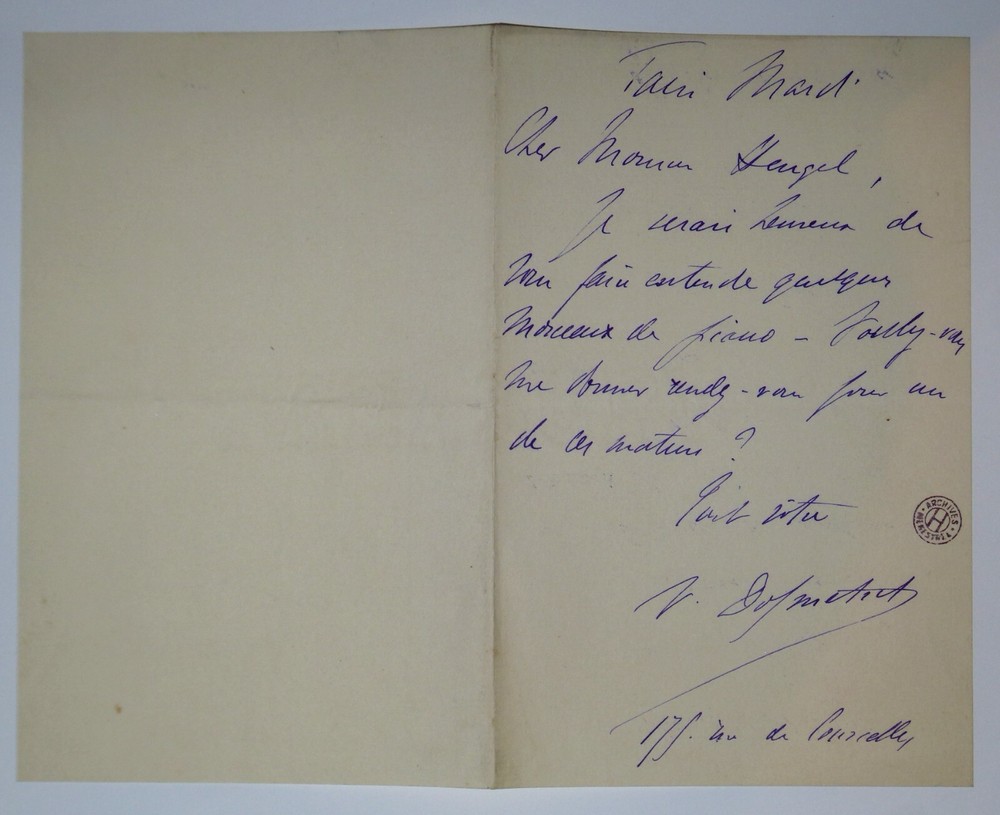 Paris Mardi
Cher Monsieur Heugel,
Je serais heureux de
vous faire entendre quelques
morceaux de piano – Voulez-vous
me donner rendez-vous pour un
de ces matins ?
Tout vôtre
V. Dolmetsch
175. rue de Courcelles
ARCHIVES
H
MENESTREL